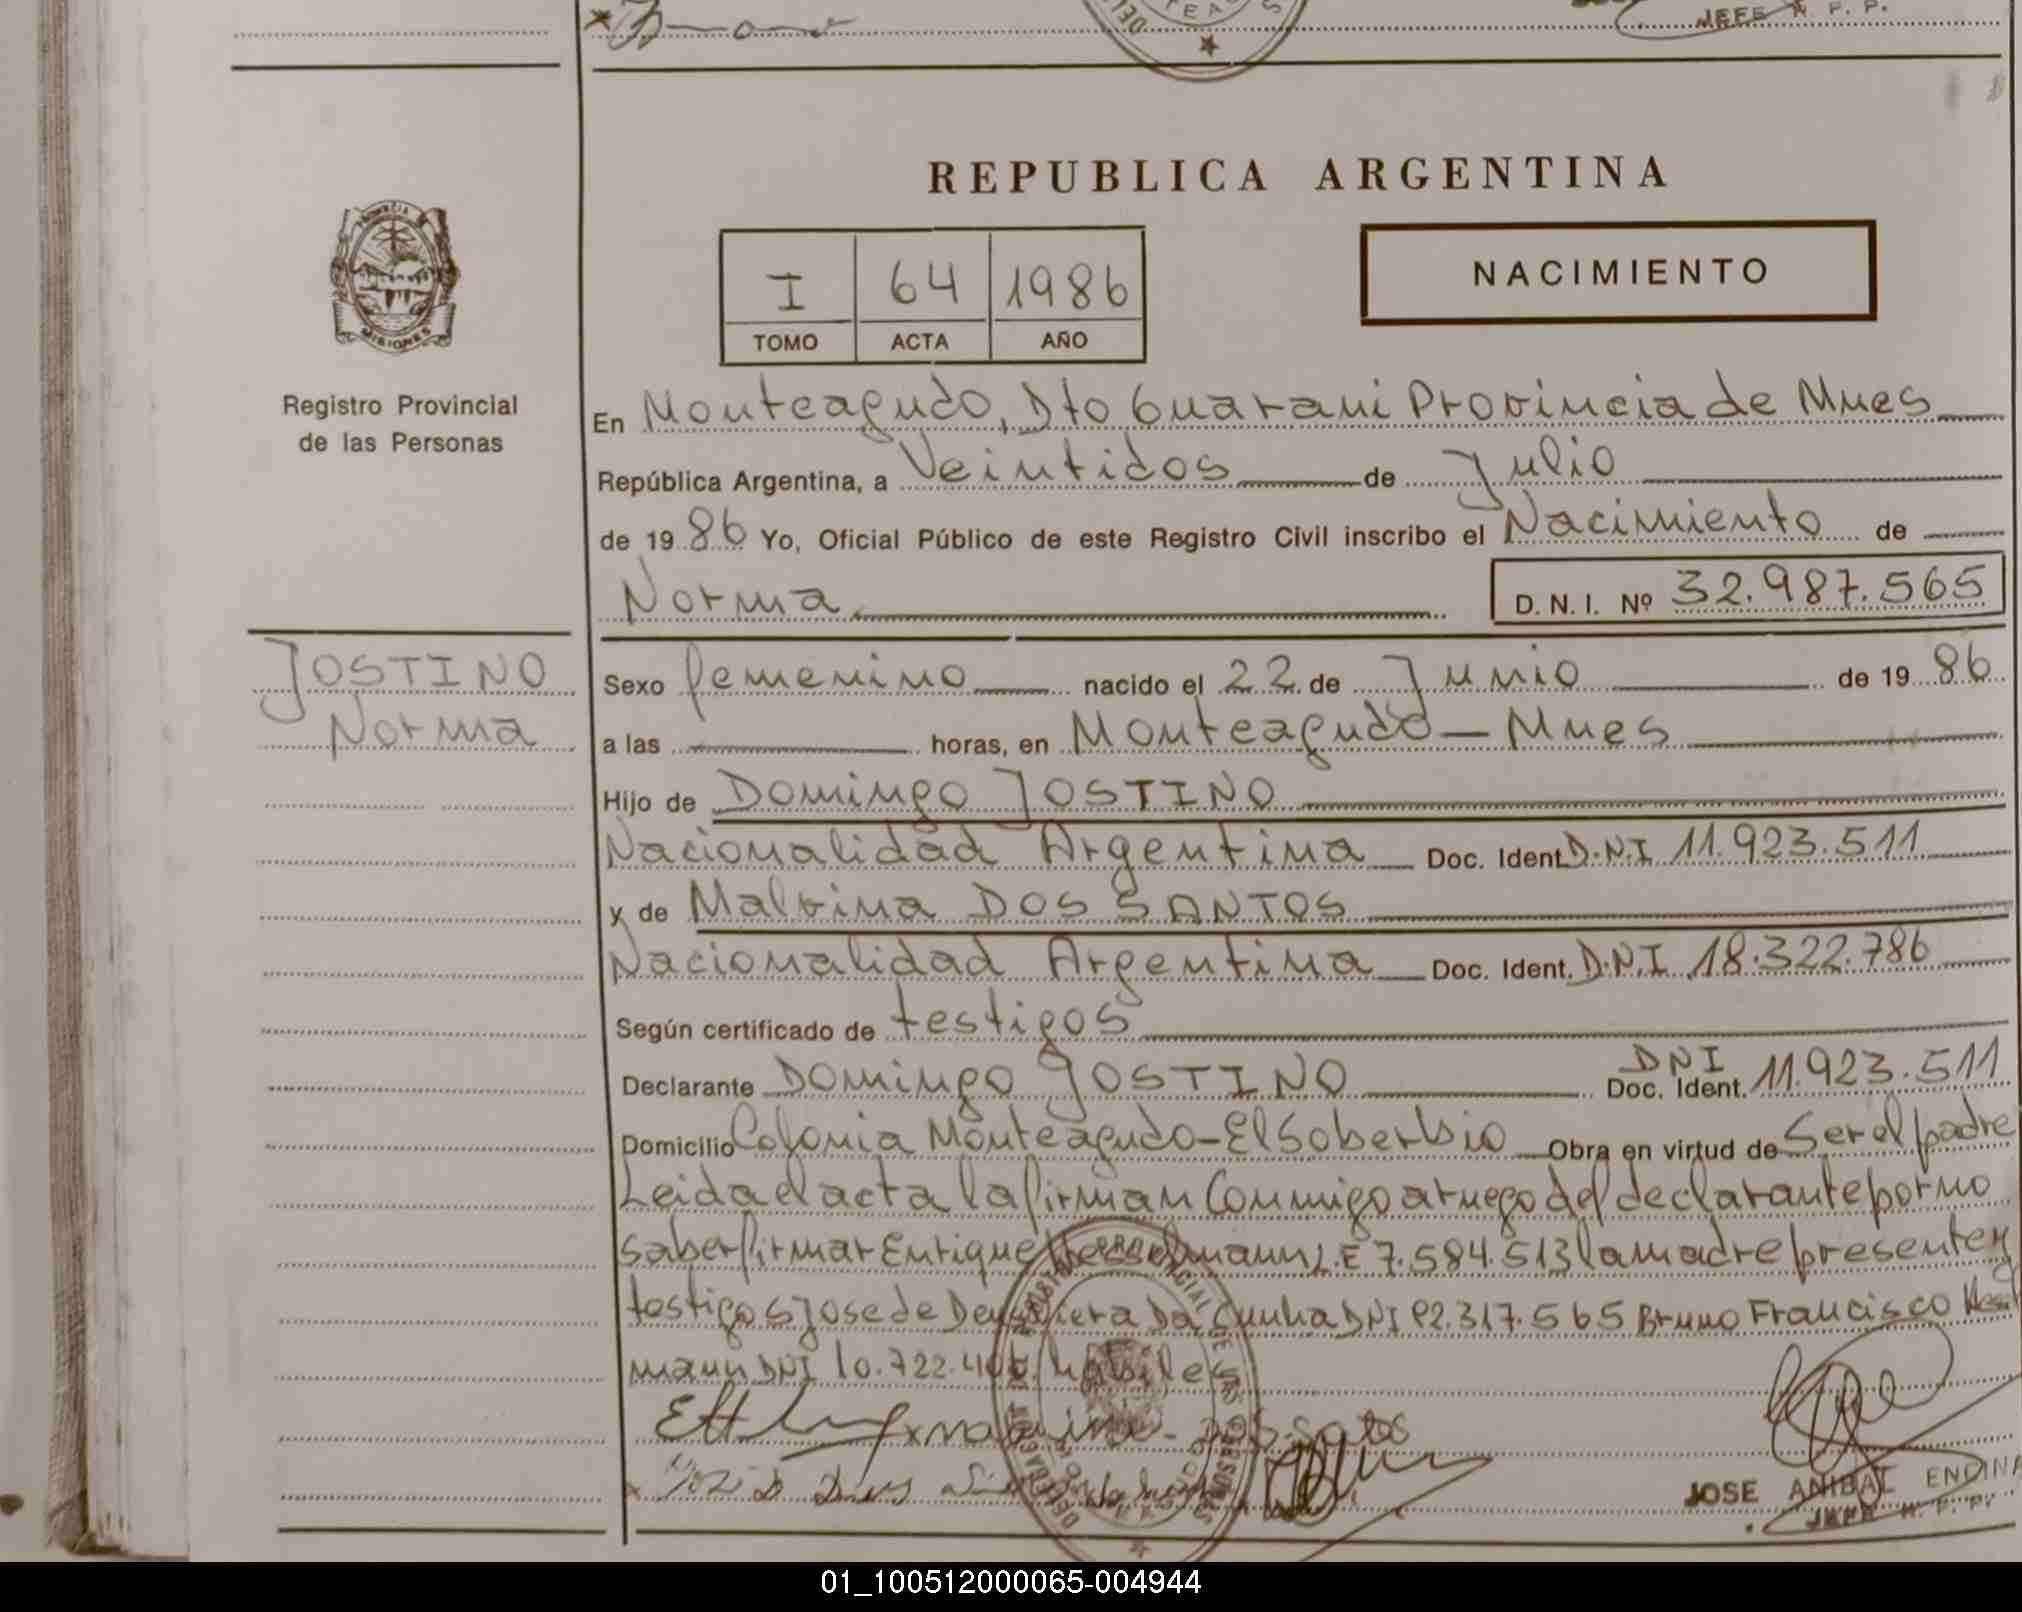 JEFE R. P. P.
REPUBLICA ARGENTINA
PROVINCIA
MISIONES
I 64 1986
TOMO ACTA AÑO
NACIMIENTO
Registro Provincial
de las Personas
En Monteagudo, Dto Guarani Provincia de Mnes
República Argentina, a Veintidos de Julio
de 19 86 Yo, Oficial Público de este Registro Civil inscribo el Nacimiento de
Norma D. N. I. Nº 32.987.565
JOSTINO
Norma
Sexo femenino nacido el 22 de Junio de 19 86
a las horas, en Monteagudo - Mnes
Hijo de Domingo JOSTINO
Nacionalidad Argentina Doc. Ident. D.N.I 11.923.511
y de Malvina DOS SANTOS
Nacionalidad Argentina Doc. Ident. D.N.I 18.322.786
Según certificado de testigos
Declarante Domingo JOSTINO Doc. Ident. DNI 11.923.511
Domicilio Colonia Monteagudo - El Soberbio Obra en virtud de Ser el padre
Leida el acta la firman Conmigo a ruego del declarante por no
saber firmar Enrique L.E 7.584.513 la madre presente y
testigos Jose de Da Cunha DNI 92.317.565 Bruno Francisco
mann DNI 10.722. habiles
JOSE ANIBAL ENCINA
JEFE R. P. P.
01_100512000065-004944